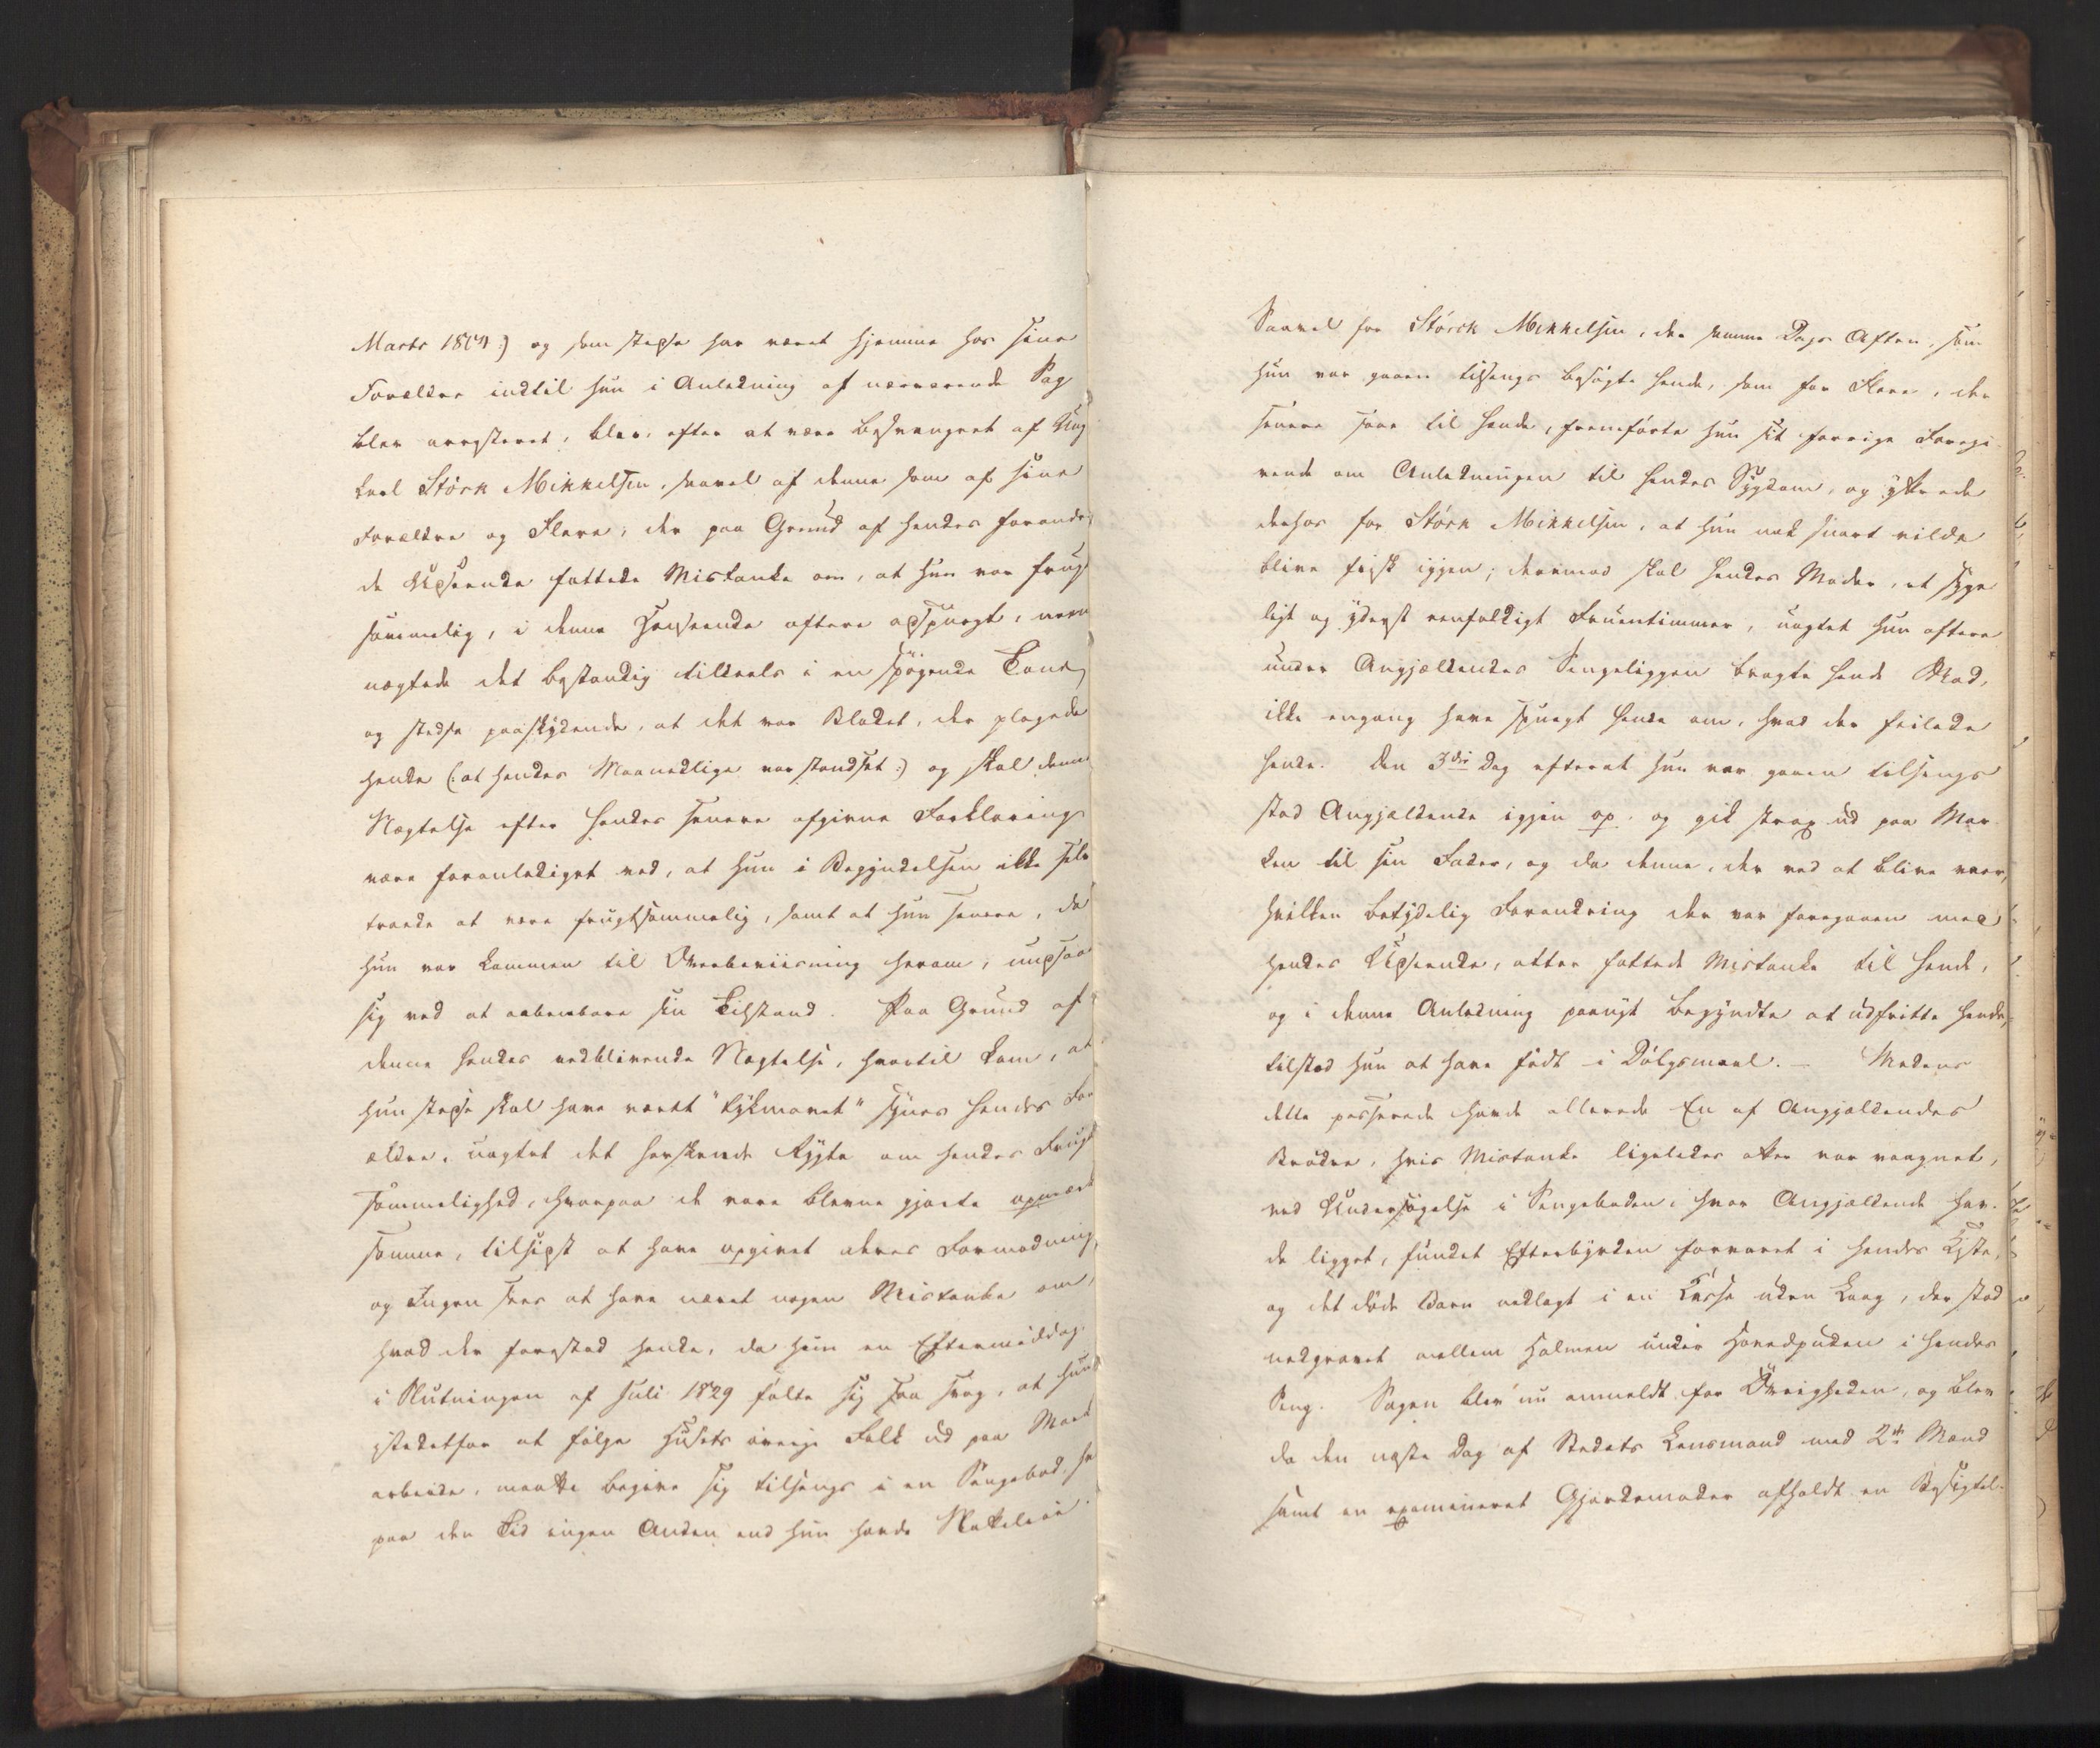 Marts 1804:) og som stedse har været hjemme hos sine
Forældre indtil hun i Anledning af nærværende Sag
blev arresteret, blev, efter at være besvangret af Ung
karl Störk Mikkelsen, saavel af denne som af sine
Forældre og Flere, der paa Grund af hendes forandre
de Udseende fattede Mistanke om, at hun var frugt
sommelig, i denne Henseende oftere adspurgt, men
nægtede det bestandig tildeels i en spögende Tone,
og stedse paaskydende, at det var Blodet, der plagede
hende (:at hendes Maanedlige var standset:) og skal denne
Nægtelse efter hendes senere afgivne Forklaring
være foranlediget ved, at hun i Begyndelsen ikke selv
troede at være frugtsommelig, samt at hun senere, da
hun var kommen til Overbeviisning herom, undsaae
sig ved at aabenbare sin Tilstand. Paa Grund af
denne hendes vedblivende Nægtelse, hvortil kom, at
hun stedse skal have været "tykmavet" synes hendes For
ældre, uagtet det herskende Rygte om hendes Frugt
sommelighed, hvorpaa de vare blevne gjorte opmærk
somme, tilsidst at have opgivet deres Formodning,
og Ingen sees at have næret nogen Mistanke om,
hvad der forestod hende, da hun en Eftermiddag
i Slutningen af Juli 1829 fölte sig saa svag, at hun
istedetfor at fölge Husets övrige Folk ud paa Mark
arbeide, maatte begive sig tilsengs i en Sengebod, hv
paa den Tid ingen Anden end hun havde Natteleie.
Saavel for Störck Mikkelsen, der samme Dags Aften, som
hun var gaaen tilsengs besögte hende, som for Flere, der
senere saae til hende, fremförte hun sit forrige Foregi
vende om Anledningen til hendes Sygdom, og yttrede
derhos for Störk Mikkelsen, at hun nok snart vilde
blive frisk igjen; derimod skal hendes Moder, et syge
ligt og yderst eenfoldigt Fruentimmer, uagtet hun oftere
under Angjældendes Sengeliggen bragte hende Mad,
ikke engang have spurgt hende om, hvad der feilede
hende. Den 3die Dag efterat hun var gaaen tilsengs
stod Angjældende igjen op og gik strax ud paa Mar
ken til sin Fader, og da denne, der ved at blive vaer,
hvilken betydelig Forandring der var foregaaen med
hendes Udseende, atter fattede Mistanke til hende,
og i denne Anledning paanyt begyndte at udfritte hende,
tilstod hun at have födt i Dölgsmaal. – Medens
dette passerede havde allerede En af Angjældendes
Brödre, hvis Mistanke ligeledes atter var vaagnet,
ved Undersögelse i Sengeboden, hvor Angjældende hav-
de ligget, fundet Efterbyrden forvaret i hendes Kiste,
og det döde Barn nedlagt i en Kasse uden Laag, der stod
nedgravet mellem Halmen under Hovedpuden i hendes
Seng. Sagen blev nu anmeldt for Övrigheden, og blev
da den næste Dag af Stedets Lensmand med 2de Mænd
samt en examineret Gjordemoder afholdt en Besigtel-